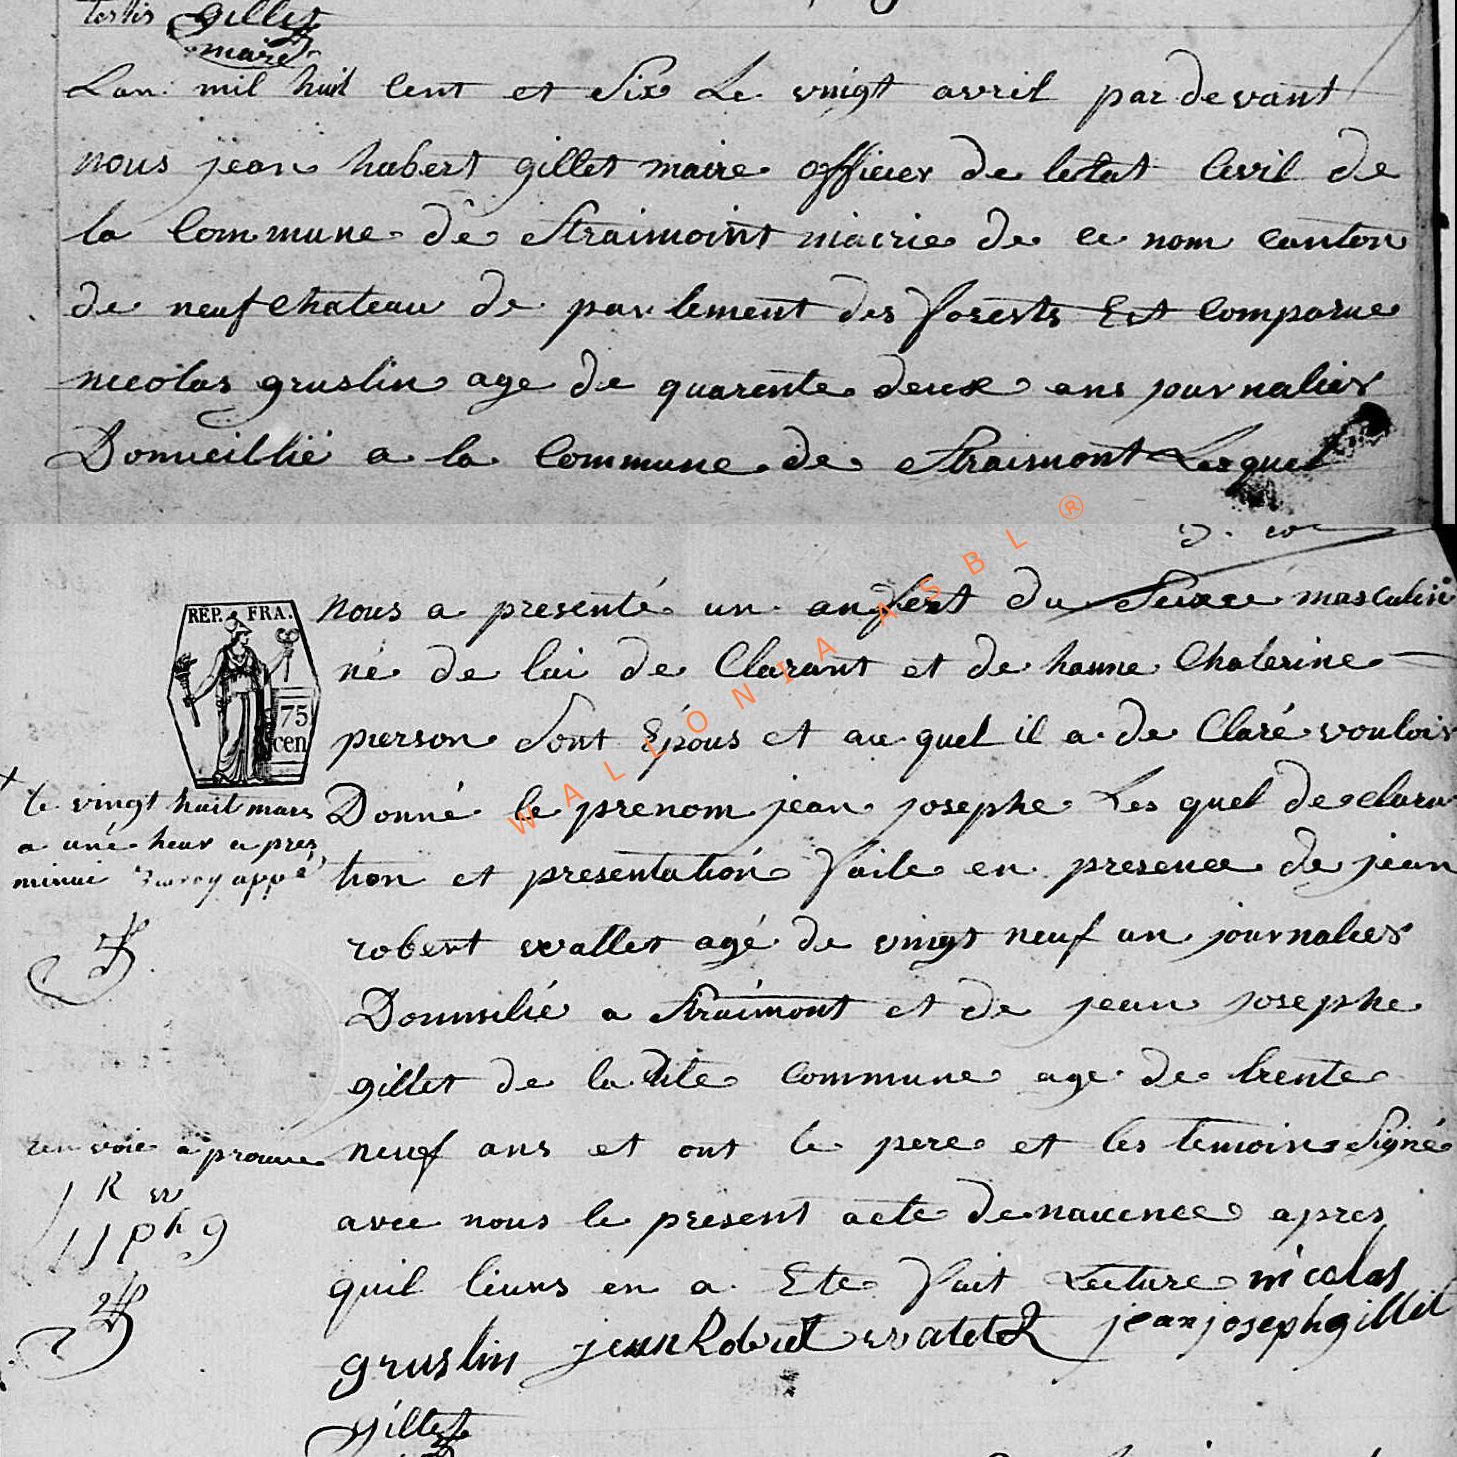 testis gillet
maire
Lan mil huit Cent et Six Le vingt avril par devant
nous jean hubert gillet maire officier de letat Civil de
la Commune de Straimoint mairie de ce nom canton
de neufchateau de par lement des forests Est Comparue
nicolas gruslin age de quarente deux ans journalier
Domicillié a la Commune de Straimont Lesquel
nous a presenté un anfent du Sexce masculin
né de lui de Clarant et de hanne Chaterine
pierson Sont Epous et au quel il a de Claré vouloir
Donné le prenom jean josephe Les quel de clara
tion et presentation faite en presence de jean
robert wallet agé de vingt neuf an journalier
Domisilié a Straimont et de jean josephe
gillet de la dite commune age de trente
neuf ans et ont le pere et les temoins Signé
avec nous le present acte de naicence apres
quil leurs en a Ete fait Lecture nicolas
gruslin jean Robert watlet jean joseph gillet
gillet
REP. FRA.
75
cen
+ le vingt huit mars
a une heur a pres
minui appé
renvoie aprouve
J R w
J J ph g
WALLONIA ASBL ®